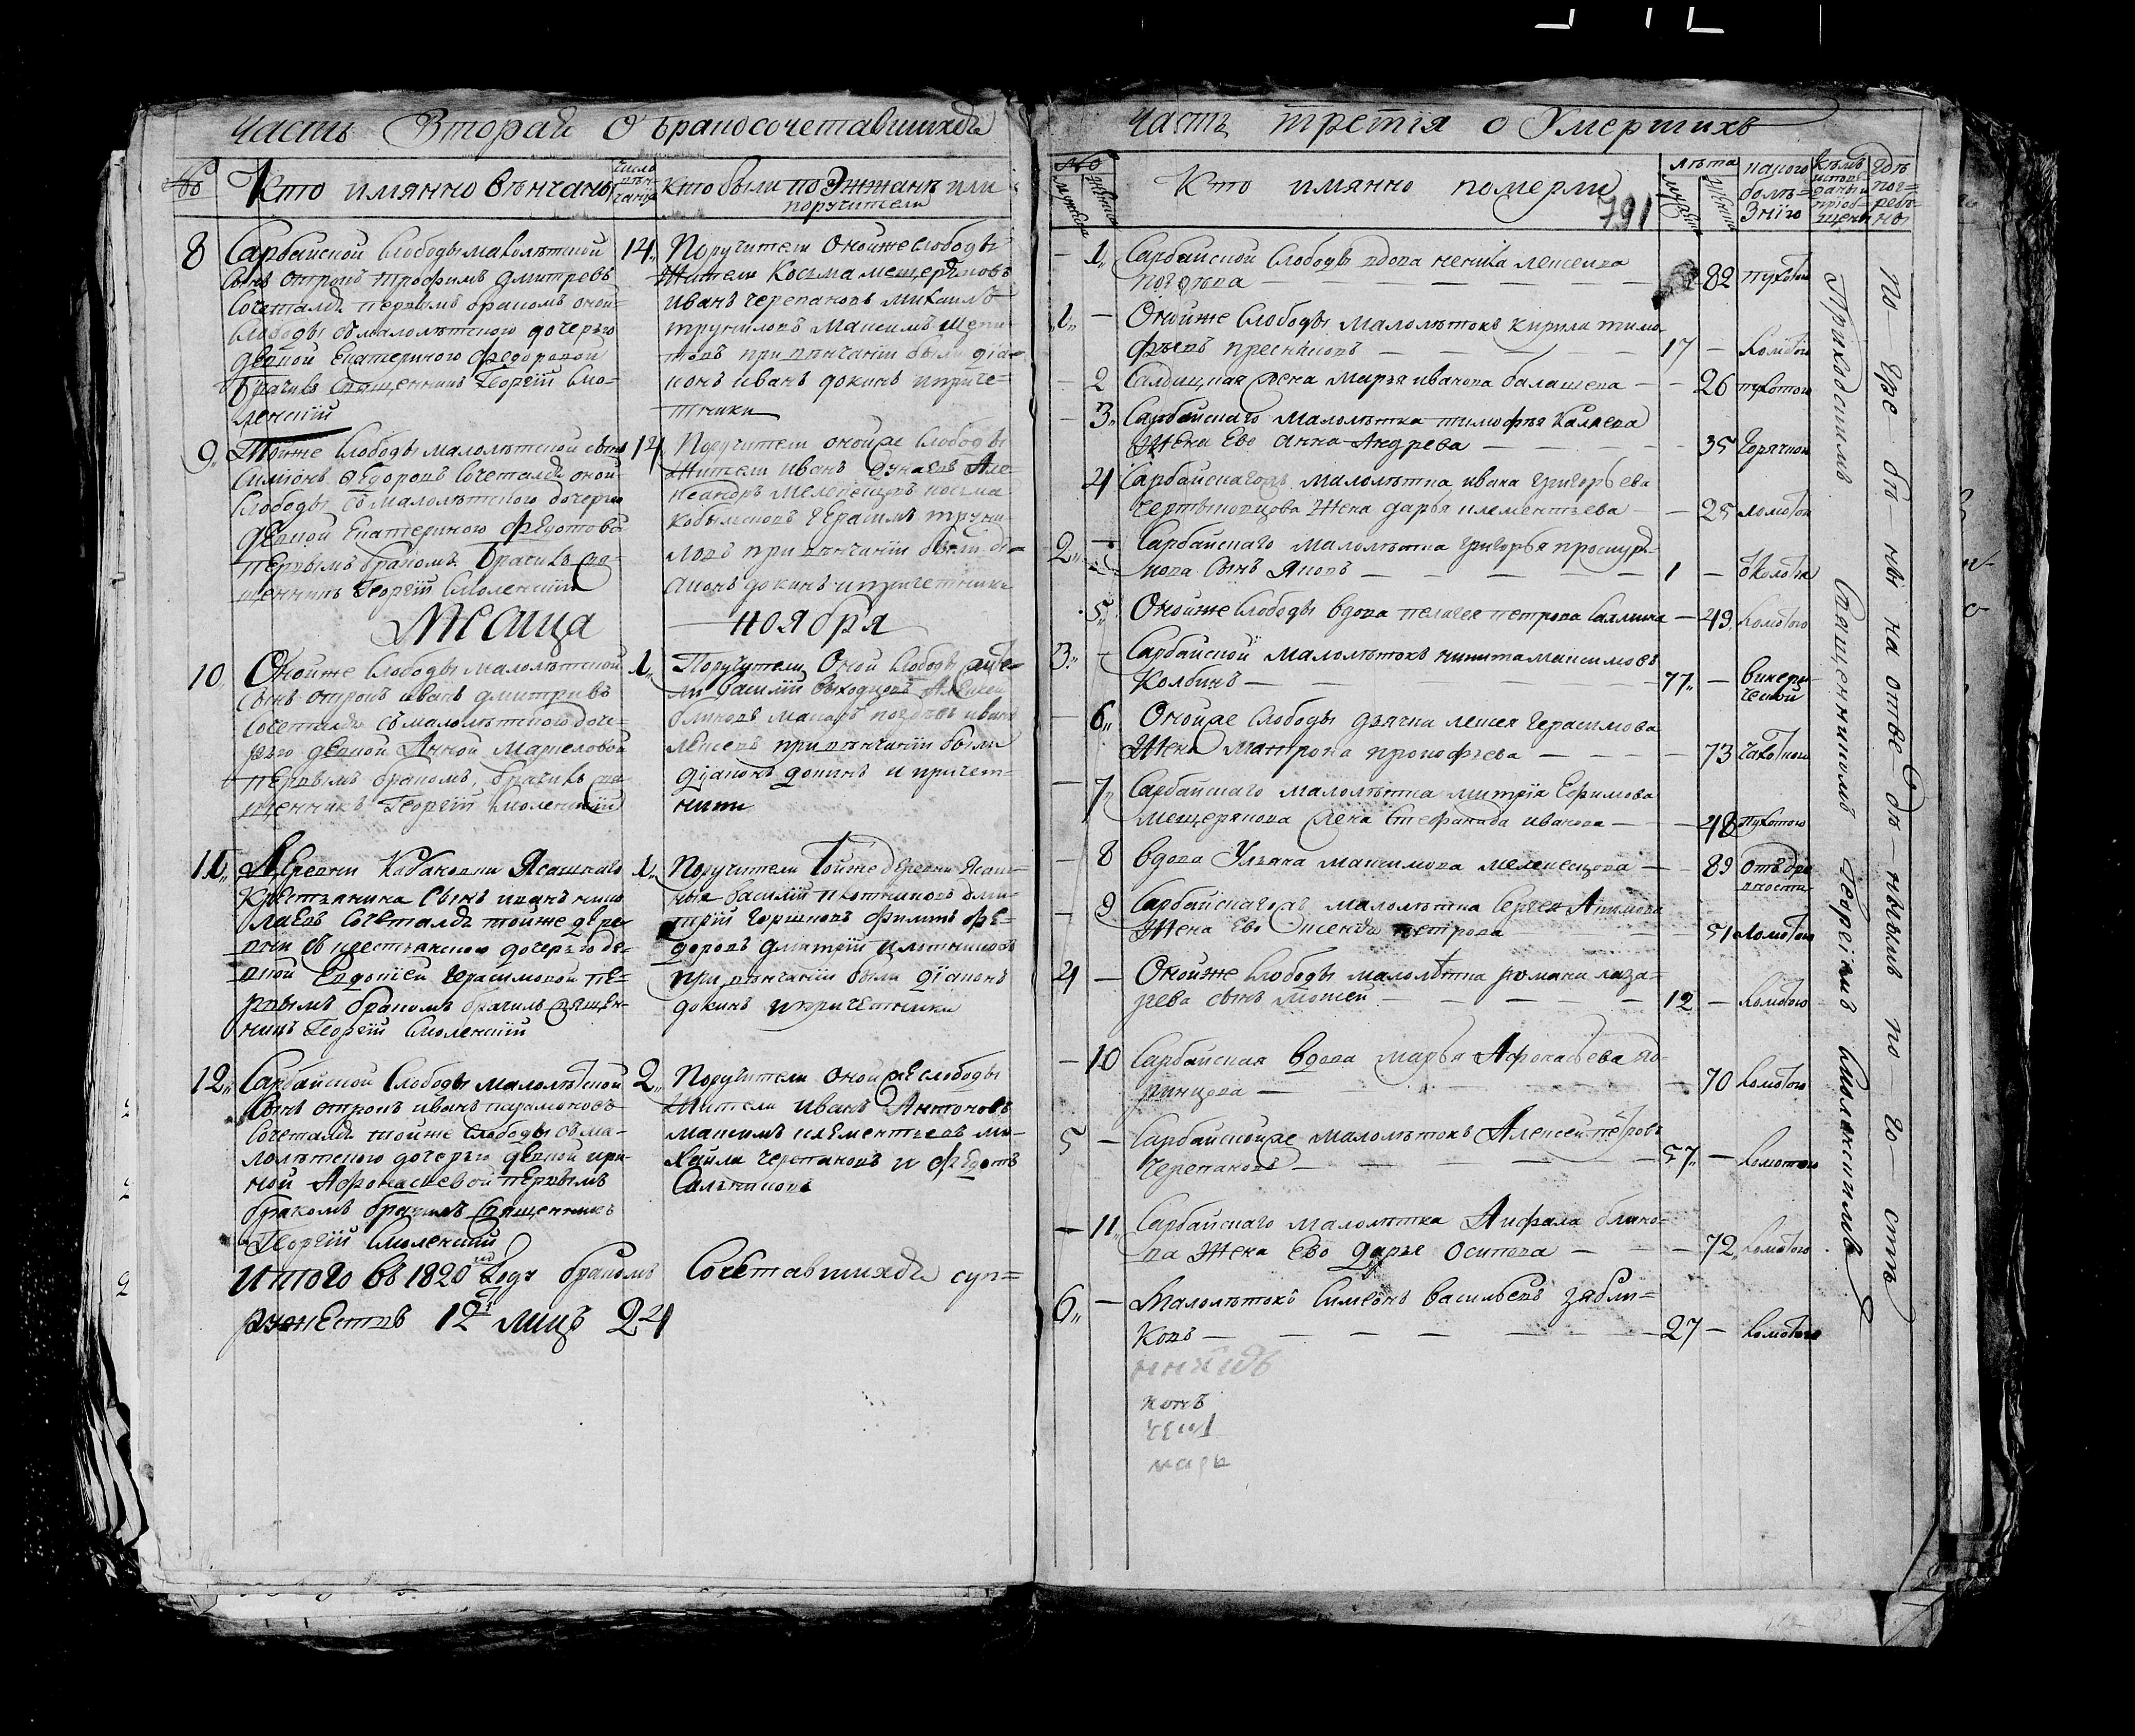 Часть Вторая О бракосочетавшихся
№
Кто имянно вѣнчаны
число вѣнчания
кто были поэжжанѣ или
поручители
8 Сарбайской Слободы малолѣтной
сынъ отрокъ трофимъ дмитревъ
Сочетался первымъ бракомъ оной
Слободы съ малолѣтского дочерью
девкой Екатериного Федоровой
Брачилъ Священникъ Георгій Смо=
ленскій
14 Поручители Онойже Слободы
Жители Косьма мещеряковъ
иванъ черепановъ михаилъ
труниловъ Максимъ
при вѣнчаніи были діа=
конъ иванъ докинъ ипричe=
тники
9 Тойже Слободы малолѣтской сынъ
Симіонъ Федоровъ Сочетался оной
Слободы съ Малолѣтского дочерью
девкой Екатериного Федотово
первымъ бракомъ Брачилъ свя=
щенникъ Георгій Смоленскій
14 Поручители онойже Слободы
Жители Иванъ Дунаевъ Але
ксандръ Мелекесцовъ косьма
кобыльсковъ Герасимъ труни
ловъ при вѣнчаніи были ді=
аконъ докинъ ипричетники
Месяца ноября
10 Онойже Слободы малолѣтской
сынъ отрокъ иванъ дмитривъ
сочетался съ малолѣтского доче=
рью девкой Анной Маркеловой
первымъ бракомъ, брачилъ свя
щенникъ Георгій Смоленскій
1 Поручители Оной Слободы жите=
ли Василій Выходцовъ Алексей
блиновъ макаръ иванъ
Алексевъ привѣнчаніи были
діаконъ докинъ и причет=
ники
11 Деревни Кабановки Ясашнаго
Крестьянина Сынъ иванъ нико
лаевъ Сочетался тойже дере
вни съ крестьянского дочерью де=
вкой Евдокіей Герасимовой пе=
рвымъ бракомъ брачилъ священ=
никъ Георгій Смоленскій
1 Поручители Тойже деревни Ясаш=
ные Василій плотниковъ дми=
трій Горшковъ Филипъ Фе=
доровъ дмитрій плотниковъ
При вѣнчаніи были діаконъ
докинъ ипричетники
12 Сарбайской Слободы малолѣтской
сынъ отрокъ иванъ парамоновъ
Сочетался тойже слободы съ ма=
лолѣтского дочерью девкой ири
ной Афонасьевой первымъ
бракомъ брачилъ Священникъ
Георгій Смоленскій
2 Поручители Онойже слободы
Жители Иванъ Антоновъ
максимъ клементьевъ ми=
хайла черепановъ и федотъ
Салтыковъ
Итого въ 1820мъ Году бракомъ Сочетавшихся суп=
ружествъ 12 лицъ 24
Часть третія о Умершихъ
№
мужеска
женска
Кто имянно померли
791
лѣта
мужеска
женска
какого болѣ=
знію
Кѣмъ исповѣ=
даны и пріоб=
щены
гдѣ пог=
ребе=
ны
1 Сарбайской Слободы вдова
82 пухотою
1 Онойже Слободы Малолѣтокъ Кирила тимо
фѣевъ пресняковъ 17 Ломотою
2 Салдацкая жена Марья иванова балашева 26 пухотою
3 Сарбайскаго малолѣтка тимофѣя Каляева
Жена Ево Анна Андрева 35 Горячкою
4 Сарбайскагожъ малолѣтка ивана Григорьева
чертыковцова Жена дарья клементьева 25 ломотою
2 Сарбайскаго малолѣтка григорья проскур
кова Сынъ Яковъ 1
5 Онойже Слободы вдова пелагея петрова 49 Ломотою
3 Сарбайской Малолѣтокъ никита максимовъ
Колбинъ 77 винери
ческой
6 Онойже Слободы дьячка Алексея Герасимова
Жена матрона прокофьева 73 чахоткою
7 Сарбайскаго малолѣтка митрія Ефимова
мещерякова жена Стефанида иванова 48 Пухотою
8 Вдова Ульяна максимова мелекесцова 89 Отъ дре
вности
9 Сарбайскагожъ малолѣтка Сергея Акимова
Жена Ево Ксенья петрова 51 Ломотою
4 Онойже Слободы малолѣтка романа лаза=
рева сынъ Мокей 12 Ломотою
10 Сарбайская Вдова марья Афонасьева
70 Ломотою
5 Сарбайскойже малолѣтокъ Алексей петровъ
Черепановъ 57 ломотою
11 Сарбайскаго малолѣтка Анфала блино=
ва Жена Ево дарья Осипова 72 Ломотою
6 Малолѣтокъ Симеонъ Васильевъ зябли=
ковъ 27 Ломотою
Приходскимъ Священникомъ Георгіемъ Смоленскимъ